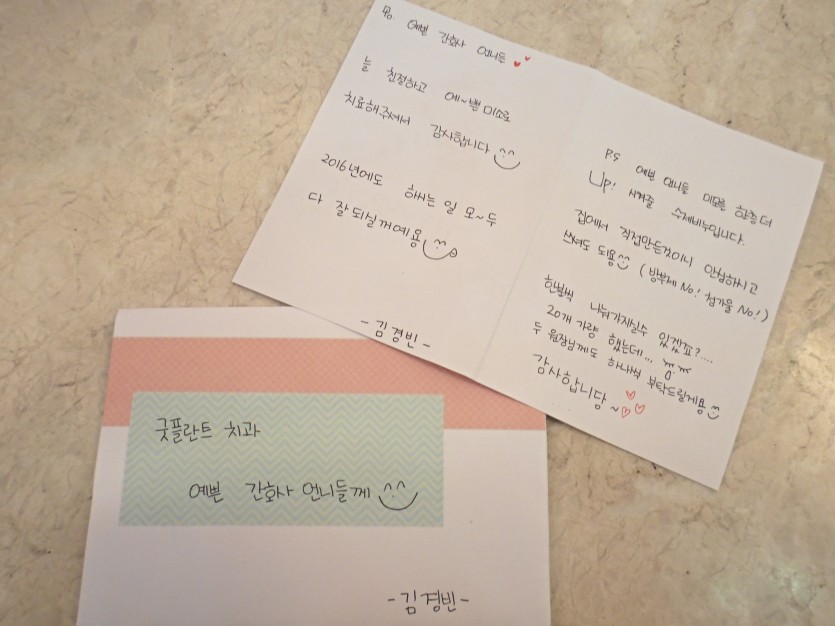 To. 예쁜 간호사 언니들
늘 친절하고 예~쁜 미소로
치료해주셔서 감사합니다
2016년에도 하시는 일 모~두
다 잘 되실꺼예용
-김경빈-
P.S 예쁜 언니들 미모를 한층 더
Up! 시켜줄 수제비누입니다.
집에서 직접만든것이니 안심하시고
쓰셔도 되용 (방부제 No! 첨가물 No!)
한별씩 나눠가지실수 있겠죠?....
20개 가량 했는데...
두 원장님께도 하나씩 부탁드릴게용
감사합니당~
굿플란트 치과
예쁜 간호사 언니들께
-김경빈-